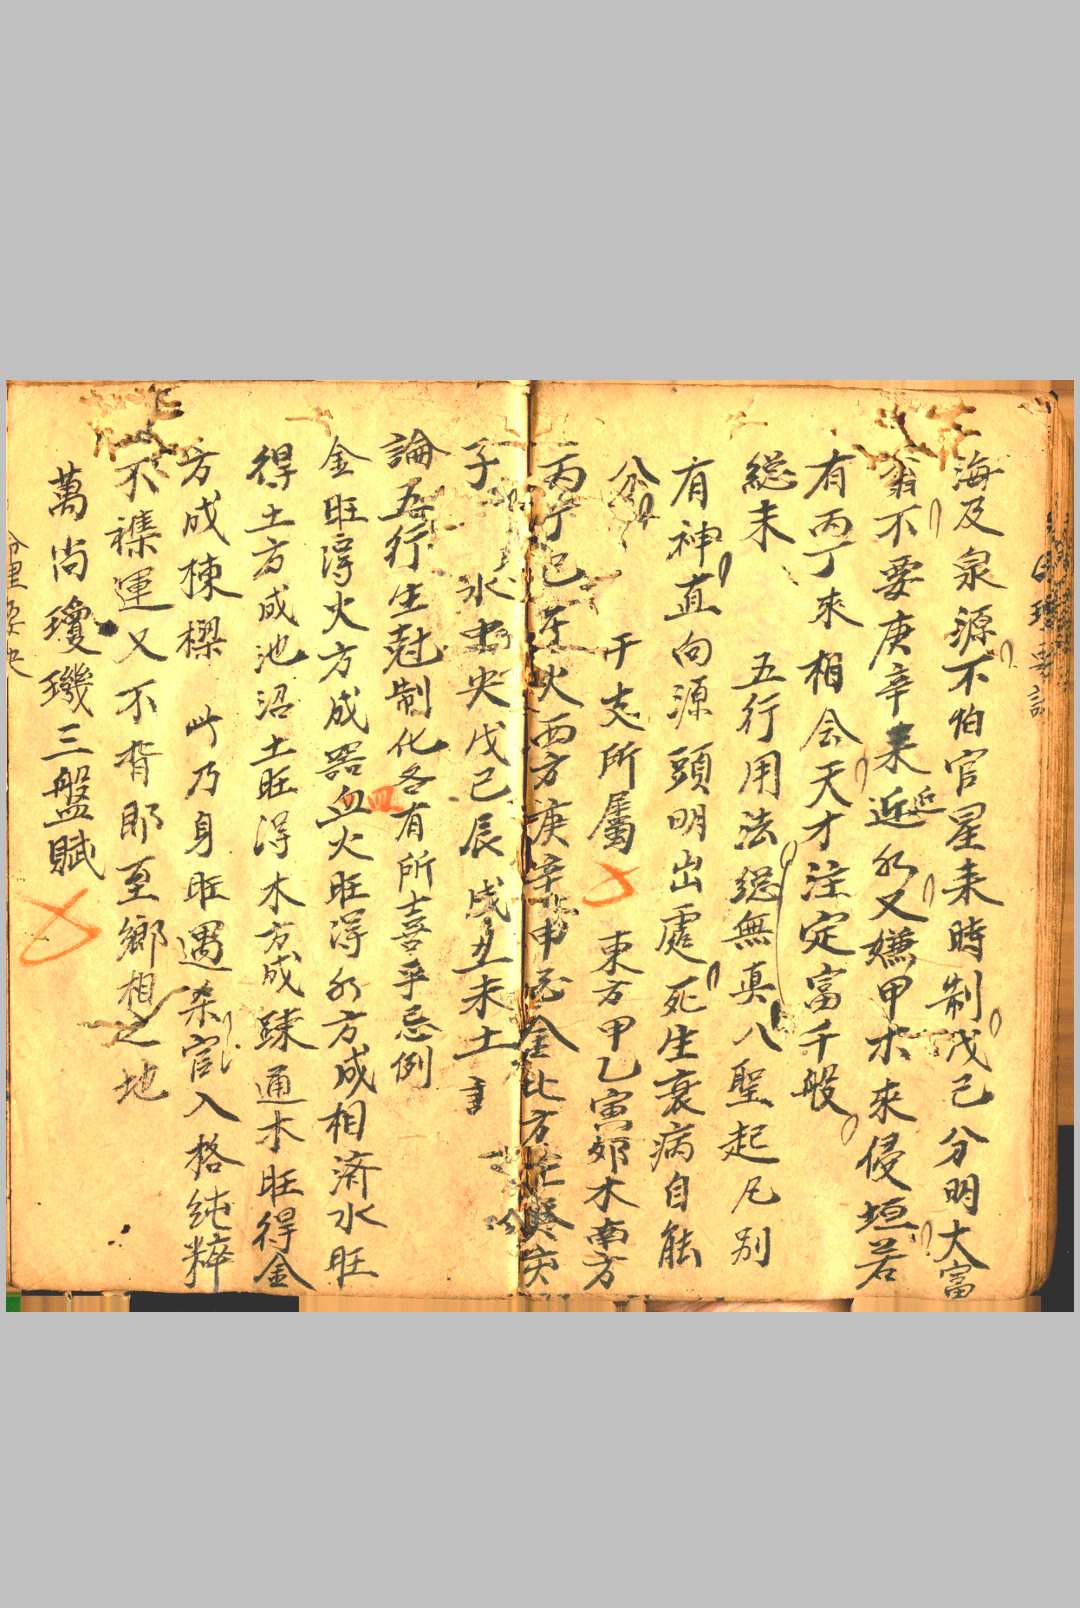 海及泉源不怕官星来時制戊己分明大富
翁不要庚辛来近水又嫌甲木來侵垣若
有丙丁來相会天才注定富千般
総未 五行用法総無真八聖起凡别
有神直向源頭明出處死生衰病自能
分 干支所屬 東方甲乙寅夘木南方
丙丁巳午火西方庚辛申酉金北方壬癸亥
子 水中央戊己辰戌丑未土
論五行生尅制化各有所喜乎忌例
金旺得火方成器皿火旺得水方成相濟水旺
得土方成池沼土旺得木方成疎通木旺得金
方成棟樑 此乃身旺遇杀官入格純粹
不襍運又不背即至鄉相之地
萬尚瓊璣三盤賦